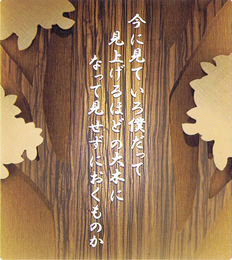 今に見ている僕だって
見上げるほどの大木に
なって見せずにおくものか